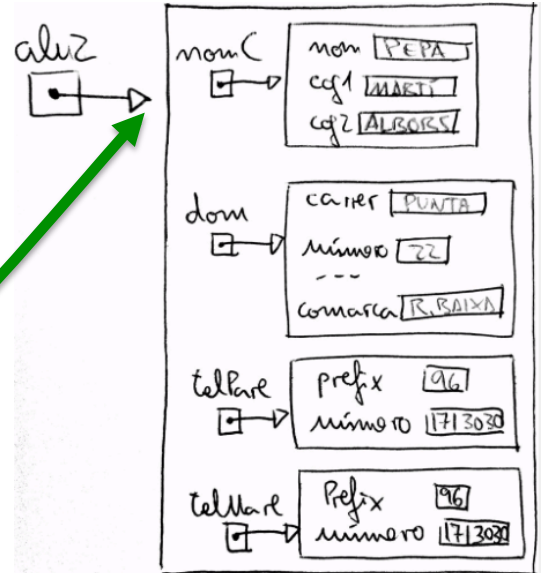 alu2
nomC
nom PEPA
cog1 MARTÍ
cog2 ALBORS
dom
carrer PUNTA
número 22
---
comarca R.BAIXA
telPare
prefix 96
número 1713030
telMare
Prefix 96
número 1713030